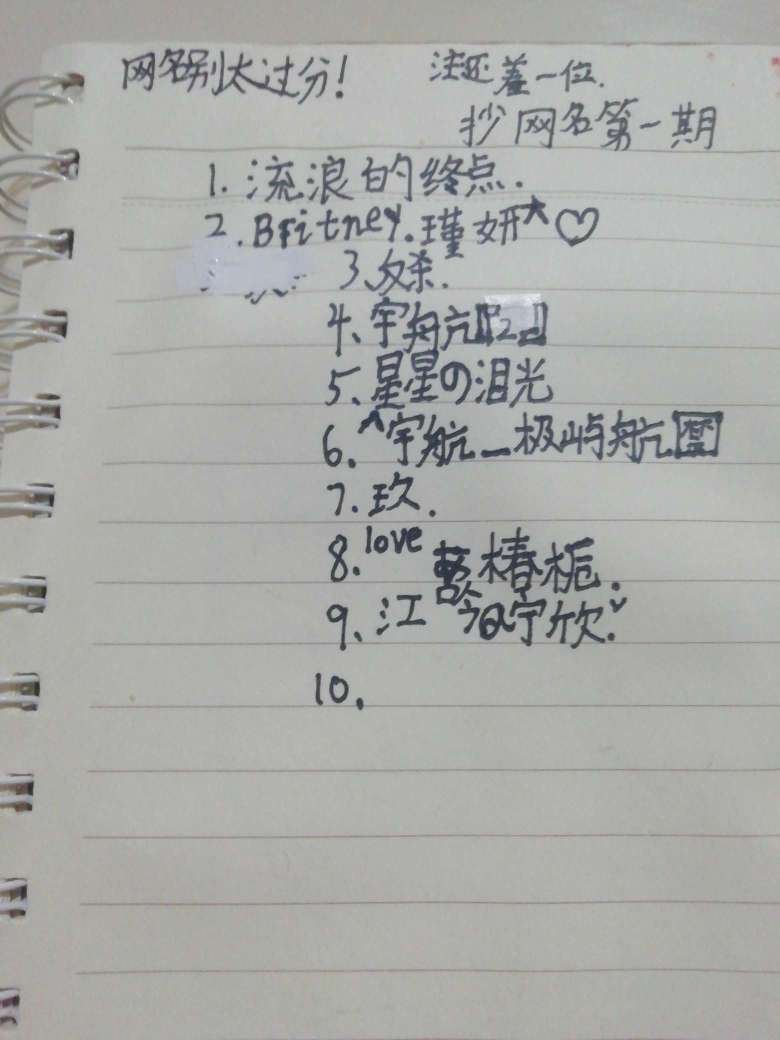 网名别太过分! 注还羞一位.
抄网名第一期
1. 流浪的终点.
2. Britney.瑾妍★♡
3、杀.
4、宇舟亢
5、星星の泪光
6. ^宇航_极屿航[梦]
7. 玖.
8. love 椿栀.
9、江 宁欣.
10.